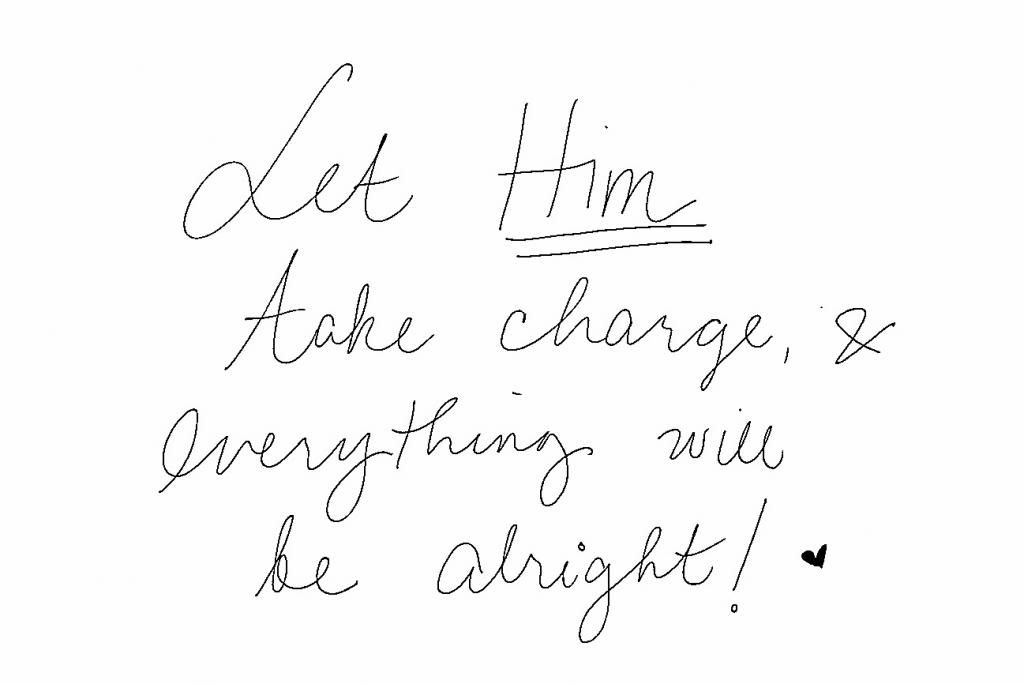 Let Him
take charge, &
everything will
be alright! ♥